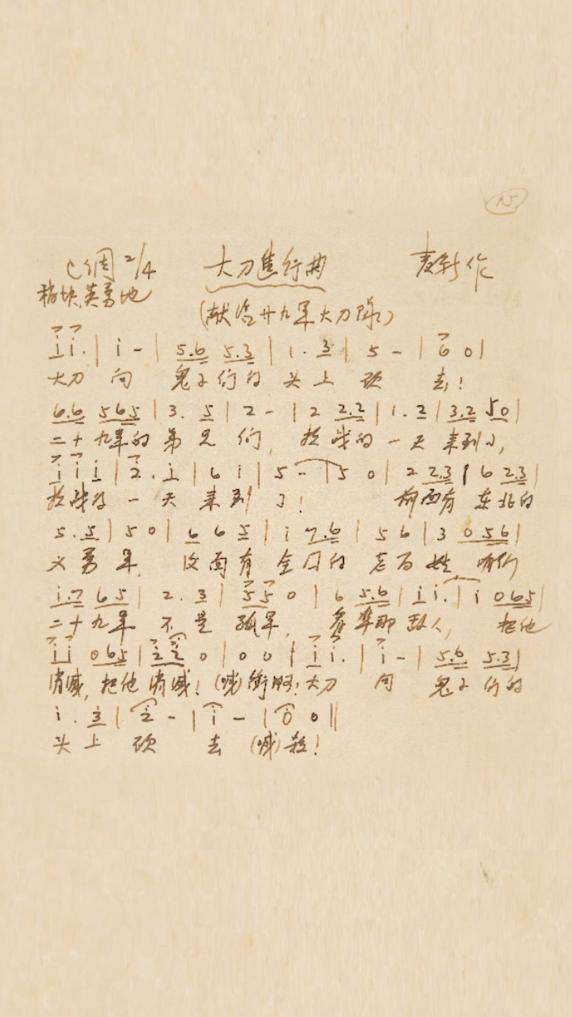 15
C调 2/4 大刀進行曲 麦新作
稍快、英勇地
(献给廿九军大刀隊)
i i. | i - | 5.6 5.3 | i. 3 | 5 - | 6 0 |
大刀 向 鬼子们的 头上 砍 去!
6.6 565 | 3. 5 | 2 - | 2 2.2 | 1. 2 | 3.2 50 |
二十九军的 弟兄 们, 抗战的 一天 来到了,
i i i | 2. i | 6 i | 5 - | 5 0 | 2 2.3 | 6 2.3 |
抗战的 一天 来到 了! 前面有 东北的
5. 5 | 5 0 | 6 6 5 | i 7.6 | 5 6 | 3 0 56 |
义勇军, 后面有 全国的 老百姓 咱们
i.7 65 | 2. 3 | 5 5 0 | 6 5.6 | i i. | i 065 |
二十九军 不是 孤军, 看準那 敌人, 把他
i i 065 | 2 2 0 | 0 0 | i i. | i - | 5.6 5.3 |
消滅, 把他 消滅!(喊)衝啊! 大刀 向 鬼子们的
i. 3 | 2 - | i - | i 0 ||
头上 砍 去 (喊)殺!